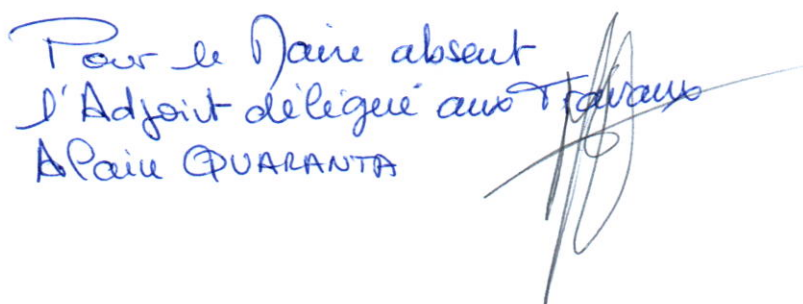 Pour le Maire absent
l'Adjoint délégué aux Travaux
Alain QUARANTA